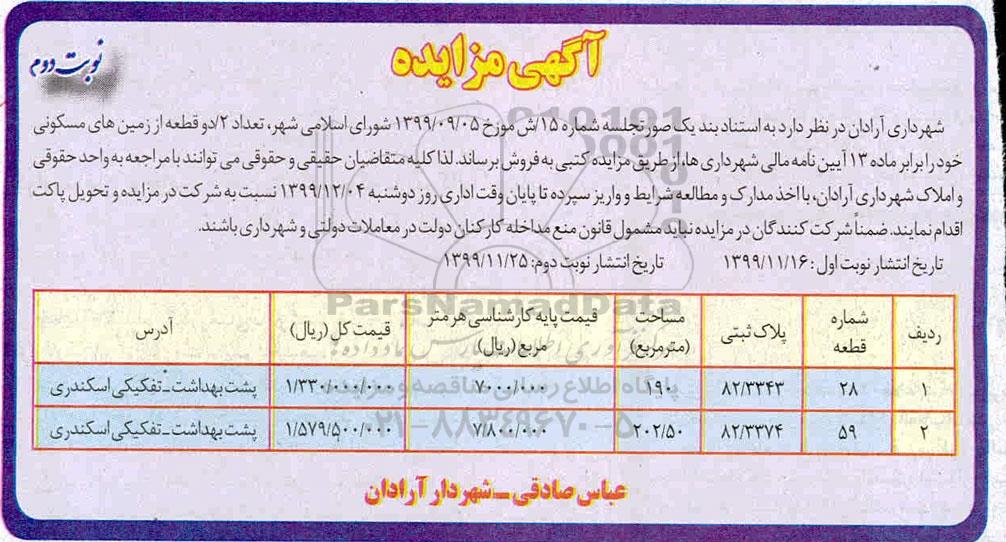 نوبت دوم
آگهی مزایده
شهرداری آرادان در نظر دارد به استناد بند یک صورتجلسه شماره ۱۵/ش مورخ ۱۳۹۹/۰۹/۰۵ شورای اسلامی شهر، تعداد ۲/دو قطعه از زمین های مسکونی
خود را برابر ماده ۱۳ آیین نامه مالی شهرداری ها، از طریق مزایده کتبی به فروش برساند. لذا کلیه متقاضیان حقیقی و حقوقی می توانند با مراجعه به واحد حقوقی
و املاک شهرداری آرادان، با اخذ مدارک و مطالعه شرایط و واریز سپرده تا پایان وقت اداری روز دوشنبه ۱۳۹۹/۱۲/۰۴ نسبت به شرکت در مزایده و تحویل پاکت
اقدام نمایند. ضمناً شرکت کنندگان در مزایده نباید مشمول قانون منع مداخله کارکنان دولت در معاملات دولتی و شهرداری باشند.
تاریخ انتشار نوبت اول: ۱۳۹۹/۱۱/۱۶ تاریخ انتشار نوبت دوم: ۱۳۹۹/۱۱/۲۵
ParsNamadData
ردیف شماره قطعه پلاک ثبتی مساحت (مترمربع) قیمت پایه کارشناسی هر متر مربع (ریال) قیمت کل (ریال) آدرس
۱ ۲۸ ۸۲/۳۳۴۳ ۱۹۰ ۷۰۰۰/۰۰۰ ۱/۳۳۰/۰۰۰/۰۰۰ پشت بهداشت - تفکیکی اسکندری
پایگاه اطلاع رسانی مناقصه و مزایده
۲ ۵۹ ۸۲/۳۳۷۴ ۲۰۲/۵۰ ۷/۸۰۰/۰۰۰ ۱/۵۷۹/۵۰۰/۰۰۰ پشت بهداشت - تفکیکی اسکندری
۰۲۱-۸۸۳۴۹۶۷۰-۵
عباس صادقی - شهردار آرادان